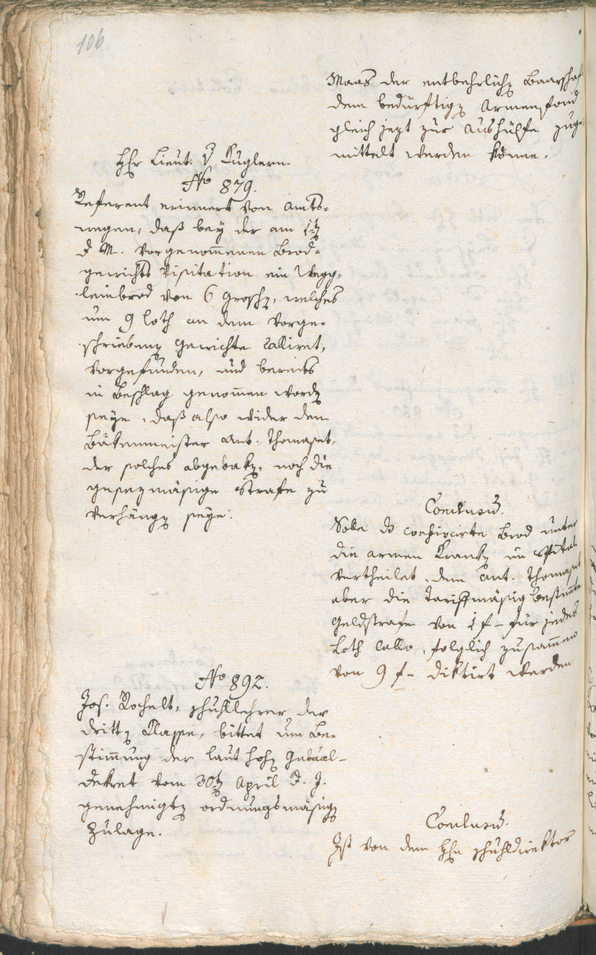 106
Maas der entbehrlichen Baarschaf
dem bedürftigen Armenfond
gleich jezt zur Aushülfe zuge-
mittelt werden könne.
Hhr Lieut. v Kuglern
No 879.
Referent erinnert von Amts-
wegen, daß bey der am
d M. vorgenommenen Brod-
gewichts Visitation ein Wegg-
leinbrod von 6 Groschen, welches
um 9 Loth an dem vorge-
schriebenen Gewichte calliret,
vorgefunden, und bereits
in Beschlag genommen worden
seye, daß also wider den
Bäkenmeister Ant. Thomaset,
der solches abgebaken, noch die
gesezmäsige Strafe zu
verhängen seye.
Conclusum.
Solle das confiscirte Brod unter
die armen Kranken im Spital
vertheilet, dem Ant. Thomaset
aber die tariffmäsig bestimmte
Geldstrafe von 1 f – für jedes
Loth Callo, folglich zusammen
von 9 f – diktirt werden
No 892.
Jos. Rochelt, Schullehrer der
dritten Klasse, bittet um Be-
stimmung der laut hohen Gubernial-
Dekret vom 30ten April d. J.
genehmigten ordnungsmäsigen
Zulage.
Conclusum.
Ist von dem Hhn Schuldirektor